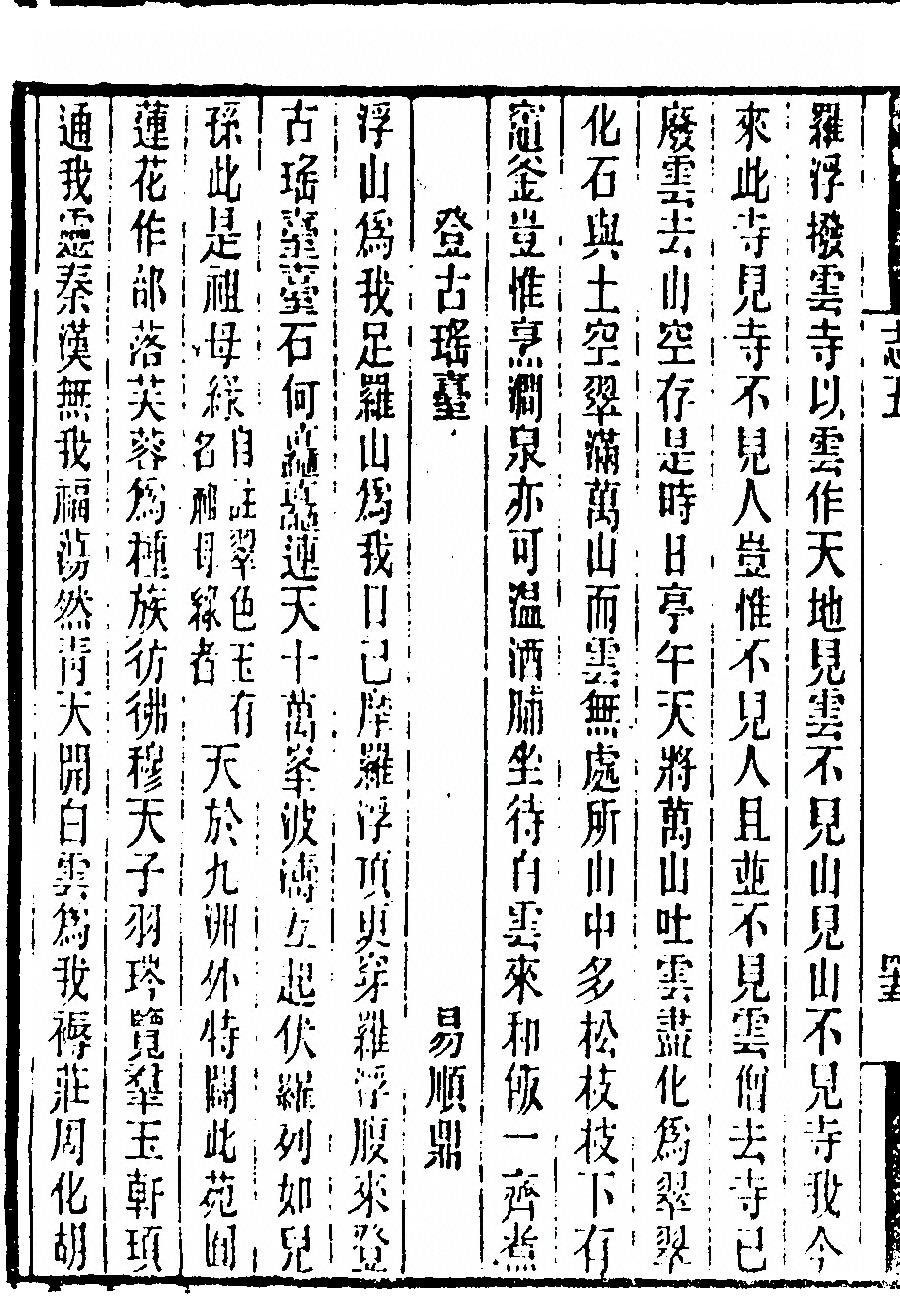 羅浮撥雲寺以雲作天地見雲不見山見山不見寺我今
來此寺見寺不見人豈惟不見人且並不見雲僧去寺已
廢雲去山空存是時日亭午天將萬山吐雲盡化為翠翠
化石與土空翠滿萬山而雲無處所山中多松枝枝下有
竈釜豈惟烹澗泉亦可温酒脯坐待白雲來和飯一齊煮
登古瑤臺
易順鼎
浮山爲我足羅山爲我目已摩羅浮頂更穿羅浮腹來登
古瑤臺臺石何矗矗蓮天十萬峯波濤互起伏羅列如兒
孫此是祖母綠自註翠色玉有名祖母綠者天於九洲外特闢此苑囿
蓮花作部落芙蓉爲種族彷彿穆天子羽琌覽羣玉軒頊
通我靈秦漢無我福蕩然青天開白雲爲我褥莊周化胡
志五